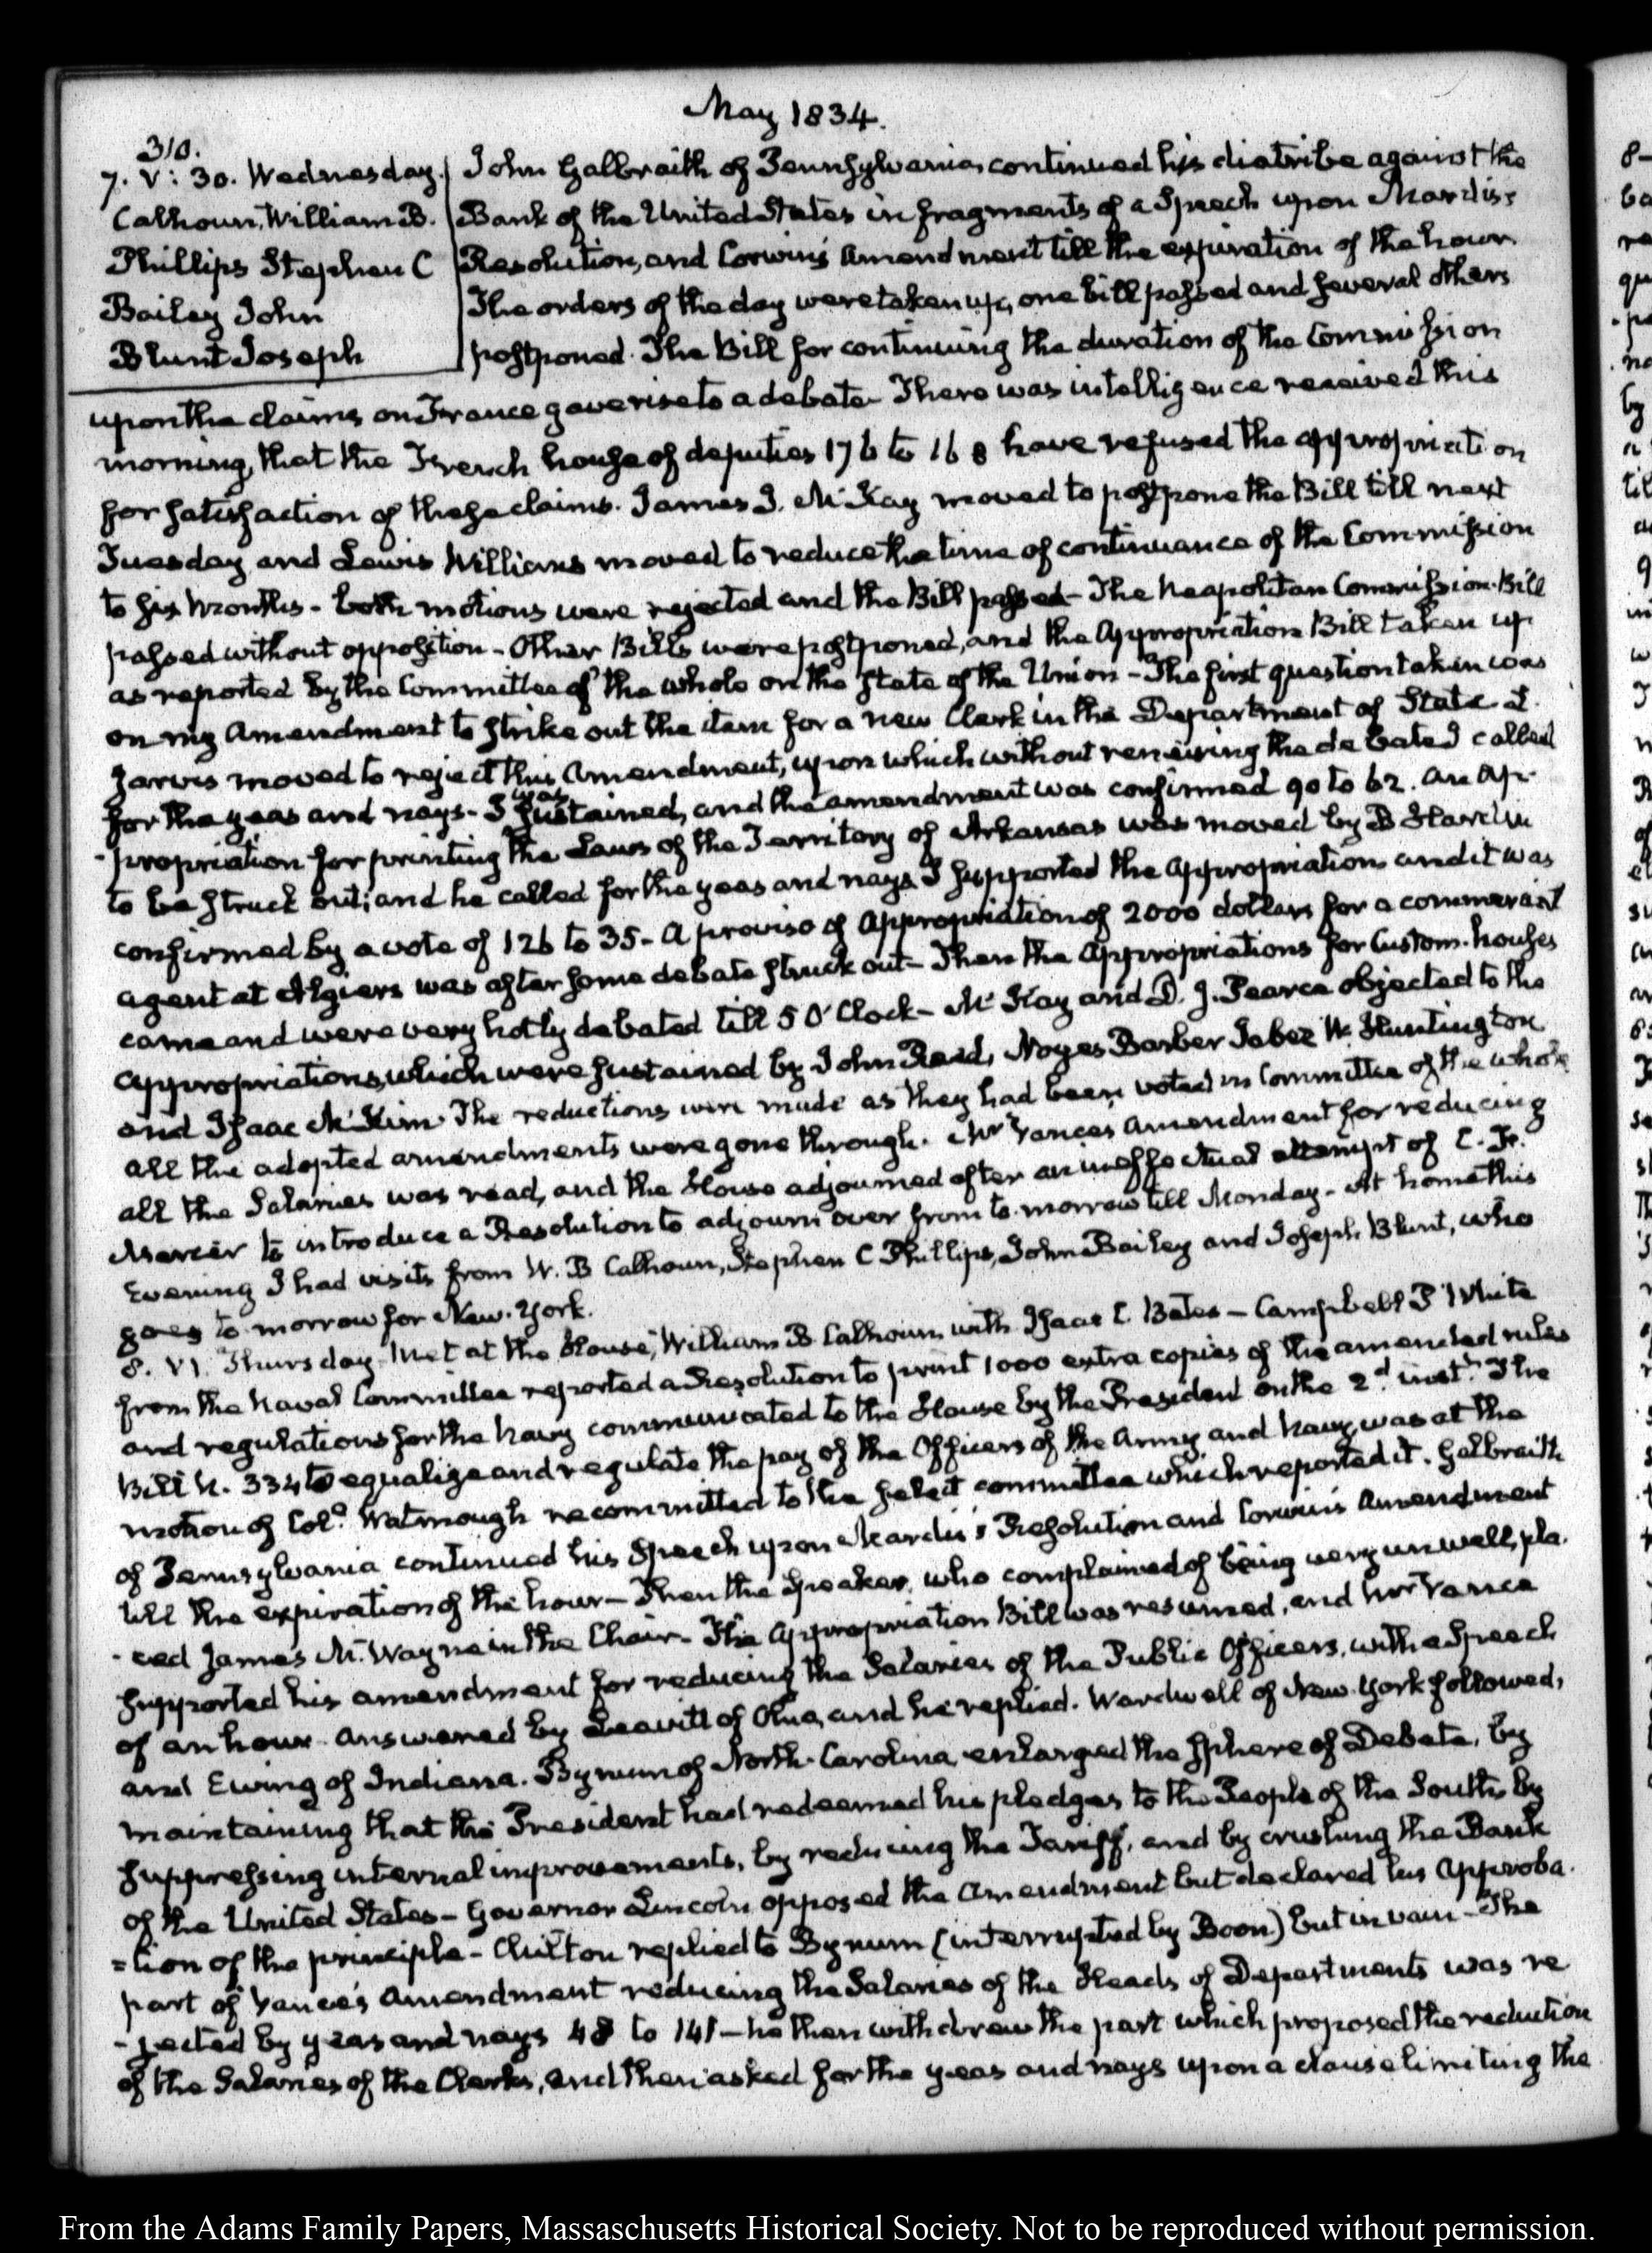 May 1834.
310.
7. V: 30. Wednesday. John Galbraith of Pennsylvania continued his diatribe against the
Calhoun, William B. Bank of the United States in fragments of a Speech upon Mardis's
Phillips Stephen C Resolution, and Corwin's Amendment till the expiration of the hour
Bailey John The orders of the day were taken up, one bill passed and several others
Blunt Joseph postponed. The Bill for continuing the duration of the Commission
upon the claims on France gave rise to a debate- There was intelligence received this
morning, that the French house of deputies 176 to 168 have refused the appropriation
for satisfaction of these claims. James J. McKay moved to postpone the Bill till next
Tuesday and Lewis Williams moved to reduce the time of continuance of the Commission
to six months- both motions were rejected and the Bill passed- The Neapolitan Commission-Bill
passed without opposition- Other Bills were postponed, and the Appropriation Bill taken up
as reported by the Committee of the whole on the state of the Union- The first question taken was
on my Amendment to strike out the item for a new Clerk in the Department of State
Jarvis moved to reject this Amendment, upon which without renewing the debate I called
for the yeas and nays- I was sustained, and the amendment was confirmed 90 to 62. An ap-
-propriation for printing the Laws of the Territory of Arkansas was moved by B Hardin
to be struck out; and he called for the yeas and nays. I supported the Appropriation and it was
confirmed by a vote of 126 to 35- A proviso of Appropriation of 2000 dollars for a commercial
agent at Algiers was after some debate struck out- Then the Appropriations for Custom-houses
came and were very hotly debated till 5 O'Clock- McKay and D. J. Pearce objected to the
appropriations, which were sustained by John Reed, Noyes Barber Jabez W. Huntington
and Isaac McKim. The reductions were made as they had been voted in Committee of the whole
all the adopted amendments were gone through. Mr Vance's Amendment for reducing
all the Salaries was read, and the House adjourned after an ineffectual attempt of C. F.
Mercer to introduce a Resolution to adjourn over from to-morrow till Monday- At home this
Evening I had visits from W. B Calhoun, Stephen C Phillips, John Bailey and Joseph Blunt, who
goes to-morrow for New-York.
8. VI. Thursday. Met at the House, William B Calhoun, with Isaac C. Bates- Campbell P White
from the Naval Committee reported a Resolution to print 1000 extra copies of the amended rules
and regulations for the Navy communicated to the House by the President on the 2d inst. The
Bill N. 334 to equalize and regulate the pay of the Officers of the Army and Navy, was at the
motion of Col. Watmough recommitted to the select committee which reported it. Galbraith
of Pennsylvania continued his Speech upon Mardis's Resolution and Corwin's Amendment
till the expiration of the hour- Then the Speaker, who complained of being very unwell, pla-
-ced James M. Wayne in the Chair- The Appropriation Bill was resumed, and Mr Vance
supported his amendment for reducing the Salaries of the Public Officers, with a Speech
of an hour- answered by Leavitt of Ohio, and he replied. Wardwell of New-York followed,
and Ewing of Indiana. Bynum of North-Carolina enlarged the sphere of Debate, by
maintaining that the President had redeemed his pledges to the People of the South, by
suppressing internal improvements, by reducing the Tariff, and by crushing the Bank
of the United States- Governor Lincoln opposed the Amendment but declared his Approba-
=tion of the principle- Chilton replied to Bynum (interrupted by Boon) but in vain- The
part of Vance's Amendment reducing the Salaries of the Heads of Departments was re
-jected by yeas and nays 48 to 141- he then withdrew the part which proposed the reduction
of the Salaries of the Clerks, and then asked for the yeas and nays upon a clause limiting the
From the Adams Family Papers, Massachusetts Historical Society. Not to be reproduced without permission.